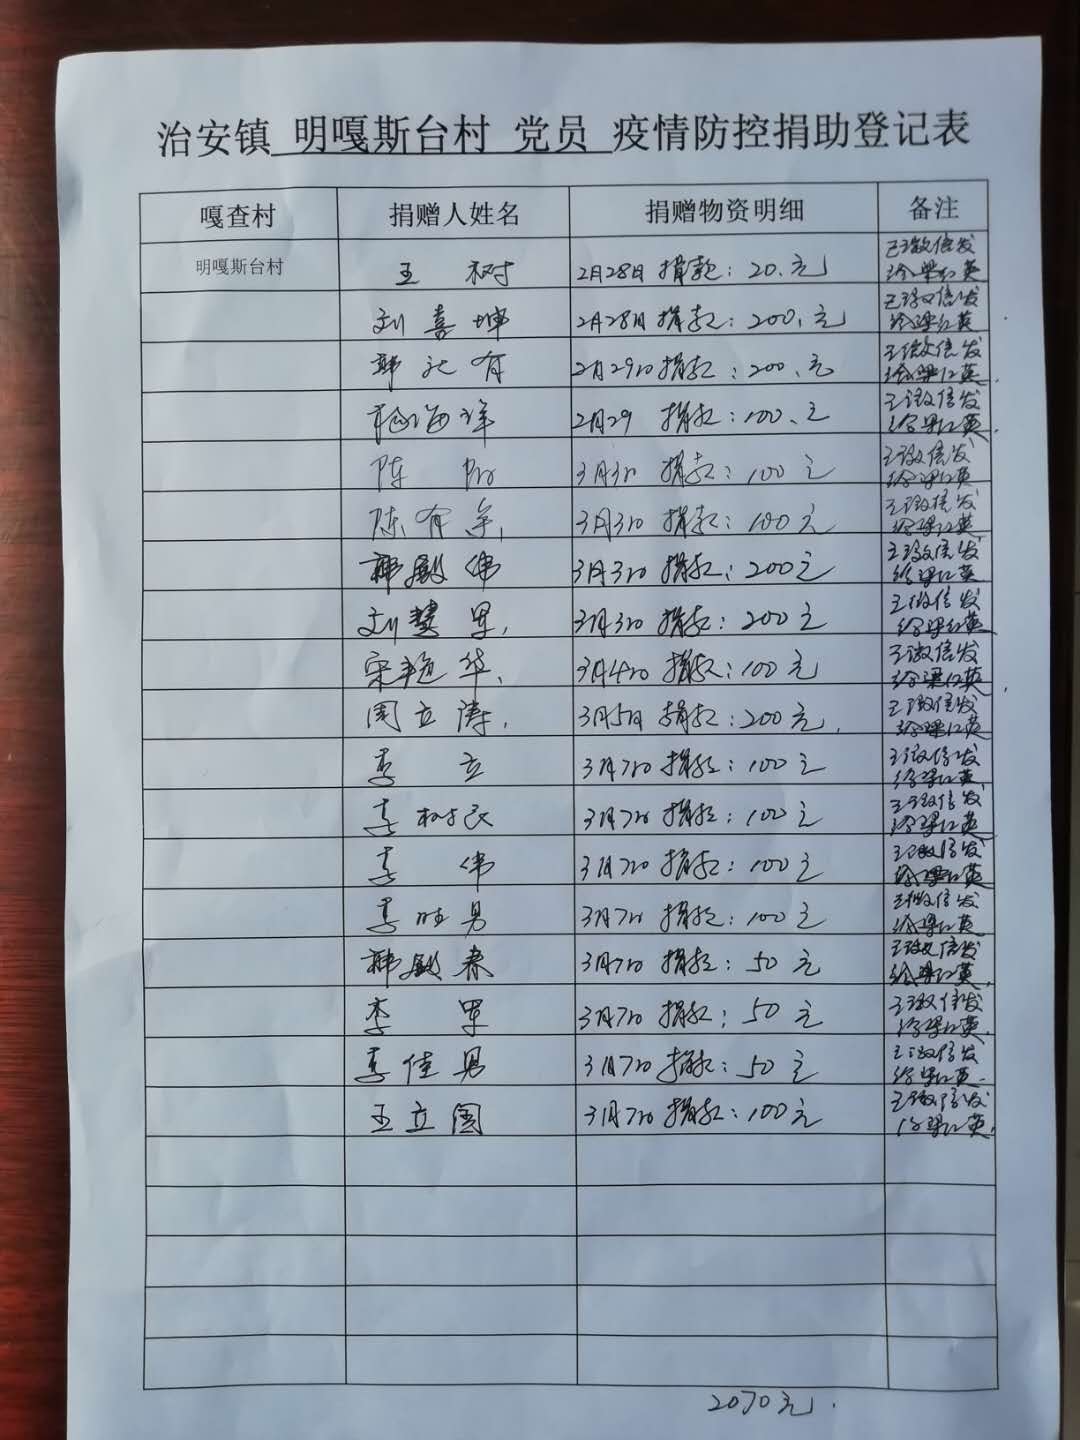 治安镇 明嘎斯台村 党员 疫情防控捐助登记表
嘎查村 捐赠人姓名 捐赠物资明细 备注
明嘎斯台村 王 树 2月28日 捐款：20.元 已微信发
给梁红英
刘喜坤 2月28日 捐款：200.元 已微信发
给梁红英
韩 有 2月29日 捐款：200.元 已微信发
给梁红英
杨海洋 2月29 捐款：100.元 已微信发
给梁红英
陈 3月3日 捐款：100元 已微信发
给梁红英
陈有 3月3日 捐款：100元 已微信发
给梁红英
韩殿伟 3月3日 捐款：200元 已微信发
给梁红英
刘慧军 3月3日 捐款：200元 已微信发
给梁红英
宋艳华 3月4日 捐款：100元 已微信发
给梁红英
周立涛 3月5日 捐款：200元 已微信发
给梁红英
李 立 3月7日 捐款：100元 已微信发
给梁红英
李树民 3月7日 捐款：100元 已微信发
给梁红英
李 伟 3月7日 捐款：100元 已微信发
给梁红英
李旺男 3月7日 捐款：100元 已微信发
给梁红英
韩殿春 3月7日 捐款：50元 已微信发
给梁红英
李 军 3月7日 捐款：50元 已微信发
给梁红英
李佳男 3月7日 捐款：50元 已微信发
给梁红英
王立国 3月7日 捐款：100元 已微信发
给梁红英
2070元.